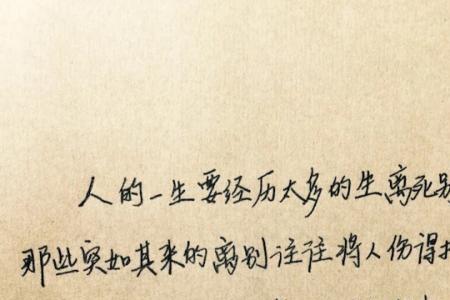 人的一生要经历太多的生离死别
那些突如其来的离别往往将人伤得